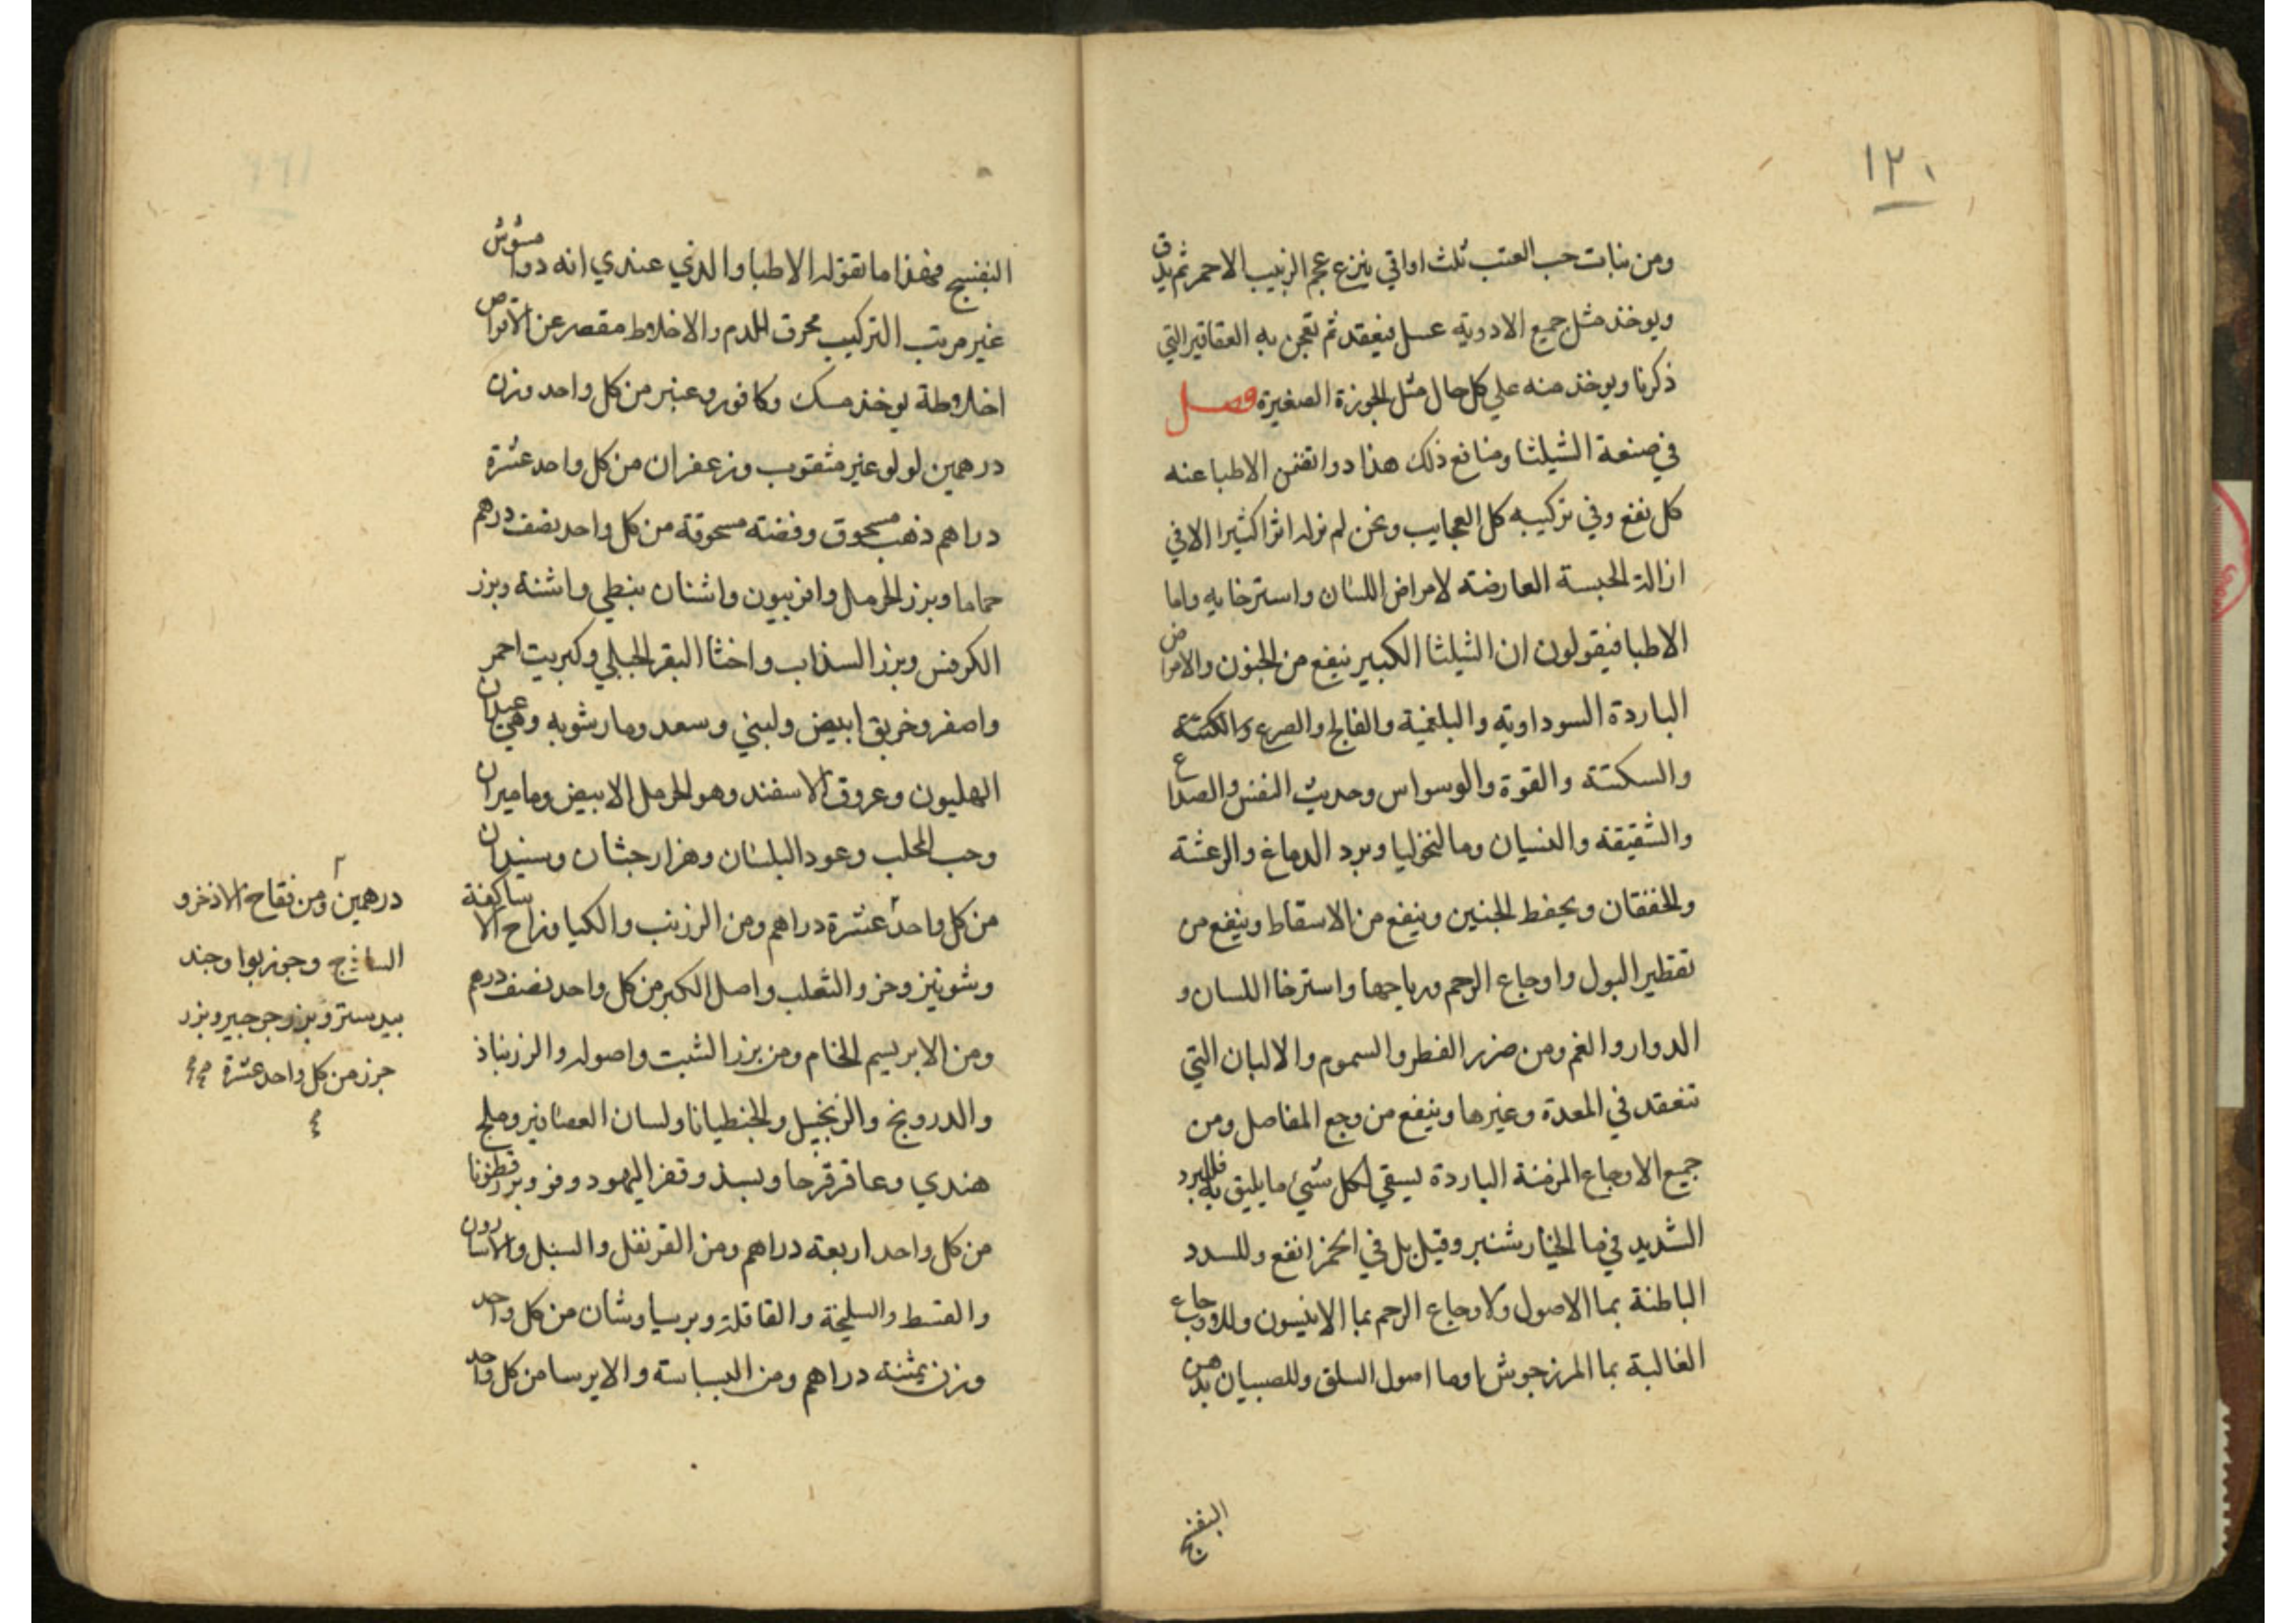 ١٢٠
ومن نبات حب العنب ثلث اواقي ينزع عجم الزبيب الاحمر ثم يدق
ويوخذ مثل جميع الادوية عسل فيعقد ثم تعجن به العقاقير التي
ذكرنا ويوخذ منه علي كل حال مثل الجوزة الصغيرة فصل
في صنعة الشيلثا ومنافع ذلك هذا دوا تضمن الاطبا عنه
كل نفع وفي تركيبه كل العجايب ونحن لم نرله اثرا كثيرا الا في
ازالة الحبسة العارضة لامراض اللسان واسترخايه واما
الاطبا فيقولون ان الشيلثا الكبير ينفع من الجنون والامراض
الباردة السوداوية والبلغمية والفالج والصرع
والسكتة والقوة والوسواس وحديث النفس والصداع
والشقيقة والنسيان ومالنخوليا وبرد الدماغ والرعشة
والخفقان ويحفط الجنين وينفع من الاسقاط وينفع من
تقطير البول واوجاع الرحم ورياحها واسترخا اللسان و
الدوار والغم ومن ضرر الفطر والسموم والالبان التي
تنعقد في المعدة وغيرها وينفع من وجع المفاصل ومن
جميع الاوجاع المزمنة الباردة يسقي لكل شيء ما يليق به فللبرد
الشديد في ما الخيار شنبر وقيل بل في الخمر انفع وللسدد
الباطنة بما الاصول ولاوجاع الرحم بما الانيسون وللاوجاع
الغالبة بما المرزجوش اوما اصول السلق وللصبيان بدهن
البنفسج
البنفسج فهذا ما تقوله الاطبا والذي عندي انه دوا مشوش
غير مرتب التركيب محرق للدم والاخلاط مقصر عن الاقراص
اخلاطه يوخذ مسك وكافور وعنبر من كل واحد وزن
درهمين لولو غير مثقوب وزعفران من كل واحد عشرة
دراهم ذهب مسحوق وفضة مسحوقة من كل واحد نصف درهم
حماما وبزر الحرمل وافربيون واشنان نبطي واشنة وبزر
الكرفس وبزر السذاب واخثا البقر الجبلي وكبريت احمر
واصفر وخربق ابيض ولبني وسعد ومارشوبه وهي عيدان
الهليون وعروق الاسفند وهو الحرمل الابيض وماميران
وحب المحلب وعود البلسان وهزارجشان وسندان
من كل واحد عشرة دراهم ومن الزرنب والكيا وزاح الاساكفة
وشونيز وخز والثعلب واصل الكبر من كل واحد نصف درهم
ومن الابريسم الخام ومن بزر الشبت واصوله والزرنباذ
والدرونج والزنجبيل والجنطيانا ولسان العصافير وملح
هندي وعاقرقرحا وبسذ وقفر اليهود وفو وبزر قطونا
من كل واحد اربعة دراهم ومن القرنفل والسنبل والاسارون
والقسط والسليخة والقاقلة وبرسياوشان من كل واحد
وزن ثمنية دراهم ومن البسباسة والايرسا من كل واحد
درهمين ومن فقاح الاذخر و
الساذج وجوزبوا وجند
بيدستر وبزر جرجير وبزر
جزر من كل واحد عشرة